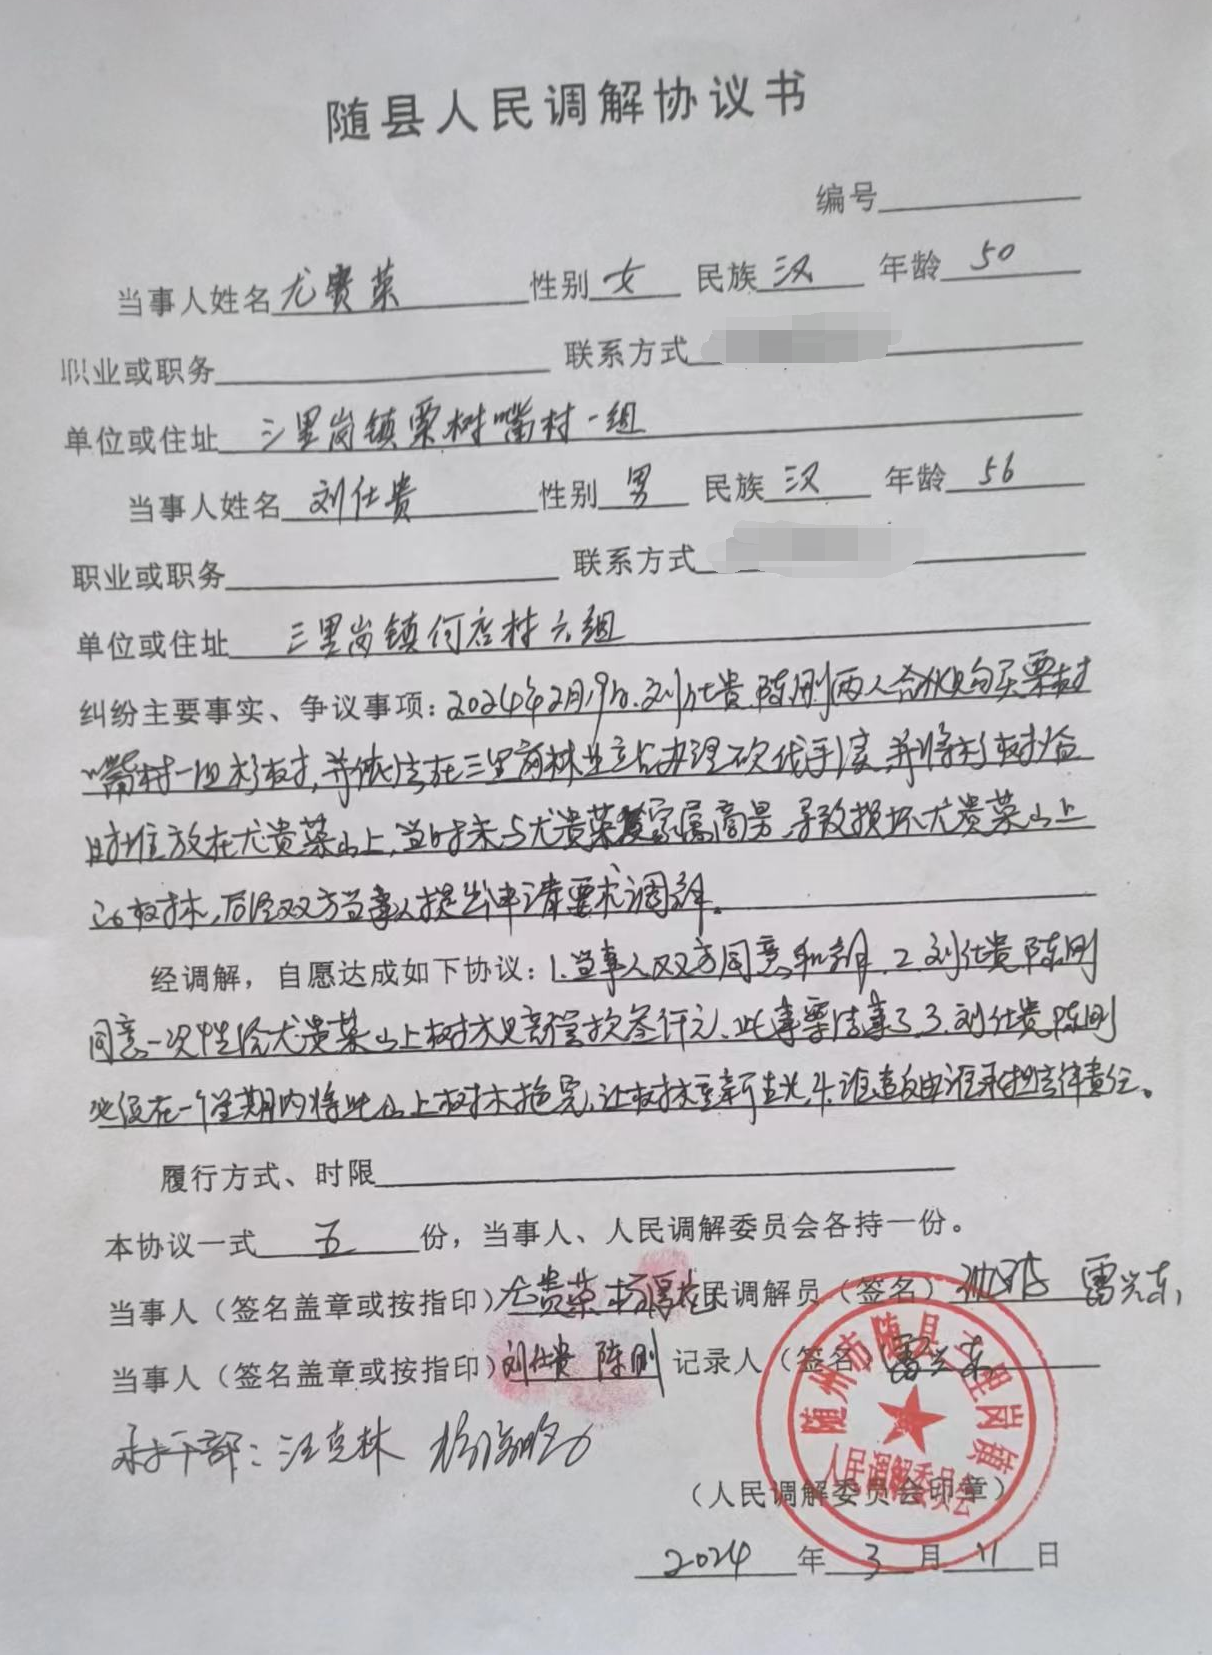 随县人民调解协议书
编号
当事人姓名 尤贵菜 性别 女 民族 汉 年龄 50
职业或职务 联系方式
单位或住址 三里岗镇栗树嘴村一组
当事人姓名 刘仕贵 性别 男 民族 汉 年龄 56
职业或职务 联系方式
单位或住址 三里岗镇何店村六组
纠纷主要事实、争议事项：2024年2月19日.刘仕贵.陈刚两人合伙购买栗树
嘴村一组杉树,并依法在三里岗林业站办理砍伐手续,并将杉树临
时堆放在尤贵菜山上,当时未与尤贵菜家属商量,导致损坏尤贵菜山上
的树木,后经双方当事人提出申请要求调解。
经调解，自愿达成如下协议：1.当事人双方同意和解.2.刘仕贵陈刚
同意一次性给尤贵菜山上树木赔偿款叁仟元.此事票结事了.3.刘仕贵陈刚
必须在一个星期内将此山上树木拖完,让树木重新生长.4.谁违反由谁承担法律责任。
履行方式、时限
本协议一式 五 份，当事人、人民调解委员会各持一份。
当事人（签名盖章或按指印）尤贵菜 民调解员（签名） 雷兴东
当事人（签名盖章或按指印）刘仕贵 陈刚 记录人（签名）雷兴东
村干部：汪克林
随州市随县三里岗镇
人民调解委员会
（人民调解委员会印章）
2024 年 3 月 11 日